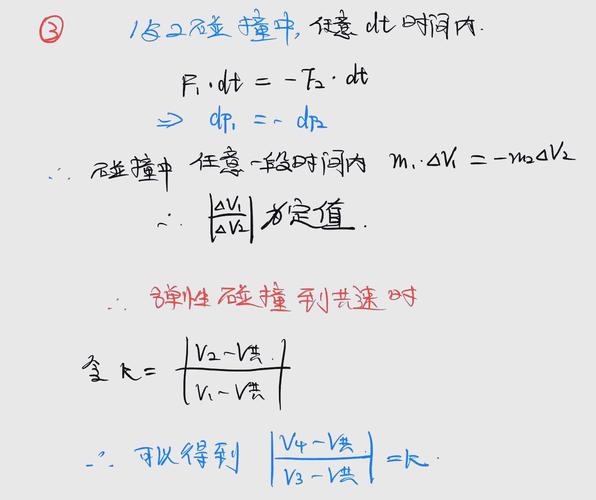 ③ 1与2碰撞中,任意dt时间内.
F₁·dt = -F₂·dt
⇒ dp₁ = - dp₂
∴ 碰撞中 任意一段时间内 m₁·ΔV₁ = -m₂ΔV₂
∴ |ΔV₁/ΔV₂| 为定值.
∴ 弹性碰撞到共速时
令 k = |V₂-V共|/|V₁-V共|
∴ 可以得到 |V₄-V共/V₃-V共| = k.